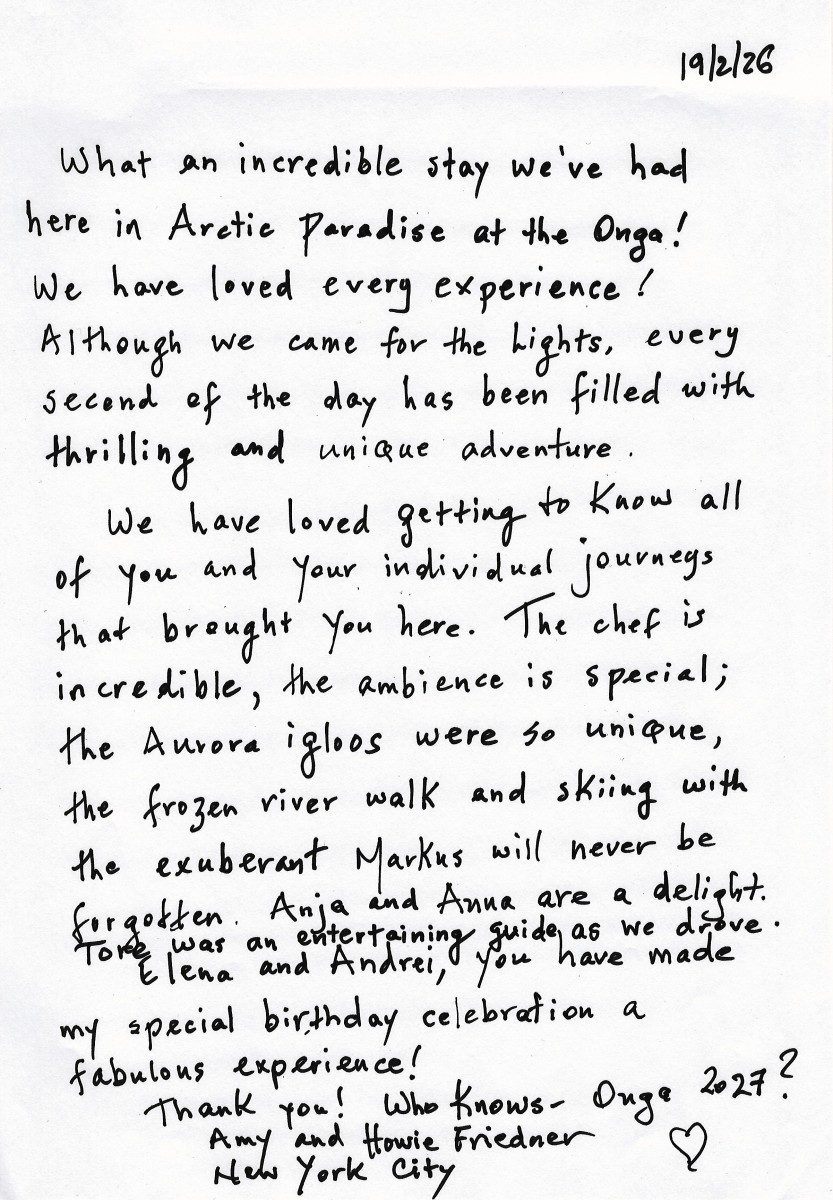 19/2/26
What an incredible stay we've had
here in Arctic Paradise at the Onga!
We have loved every experience!
Although we came for the Lights, every
second of the day has been filled with
thrilling and unique adventure.
We have loved getting to know all
of you and your individual journeys
that brought you here. The chef is
incredible, the ambience is special;
the Aurora igloos were so unique,
the frozen river walk and skiing with
the exuberant Markus will never be
forgotten. Anja and Anna are a delight.
Tore was an entertaining guide as we drove.
Elena and Andrei, you have made
my special birthday celebration a
fabulous experience!
Thank you! Who Knows- Onga 2027?
Amy and Howie Friedner
New York City